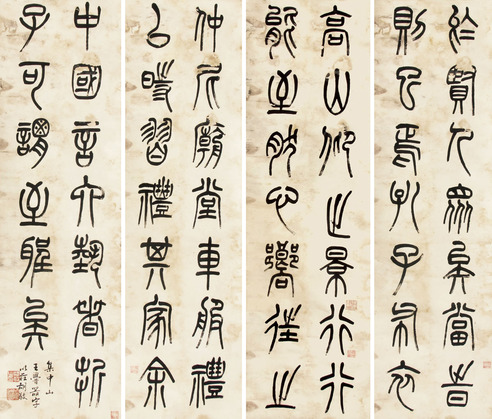 於賢人眾矣當時
則已焉孔子布衣
高山仰止景行行
能至然心嚮往
仲尼廟堂車服禮
以時習禮其家余
中國言六藝者折
子可謂至聖矣
集中山
王器字